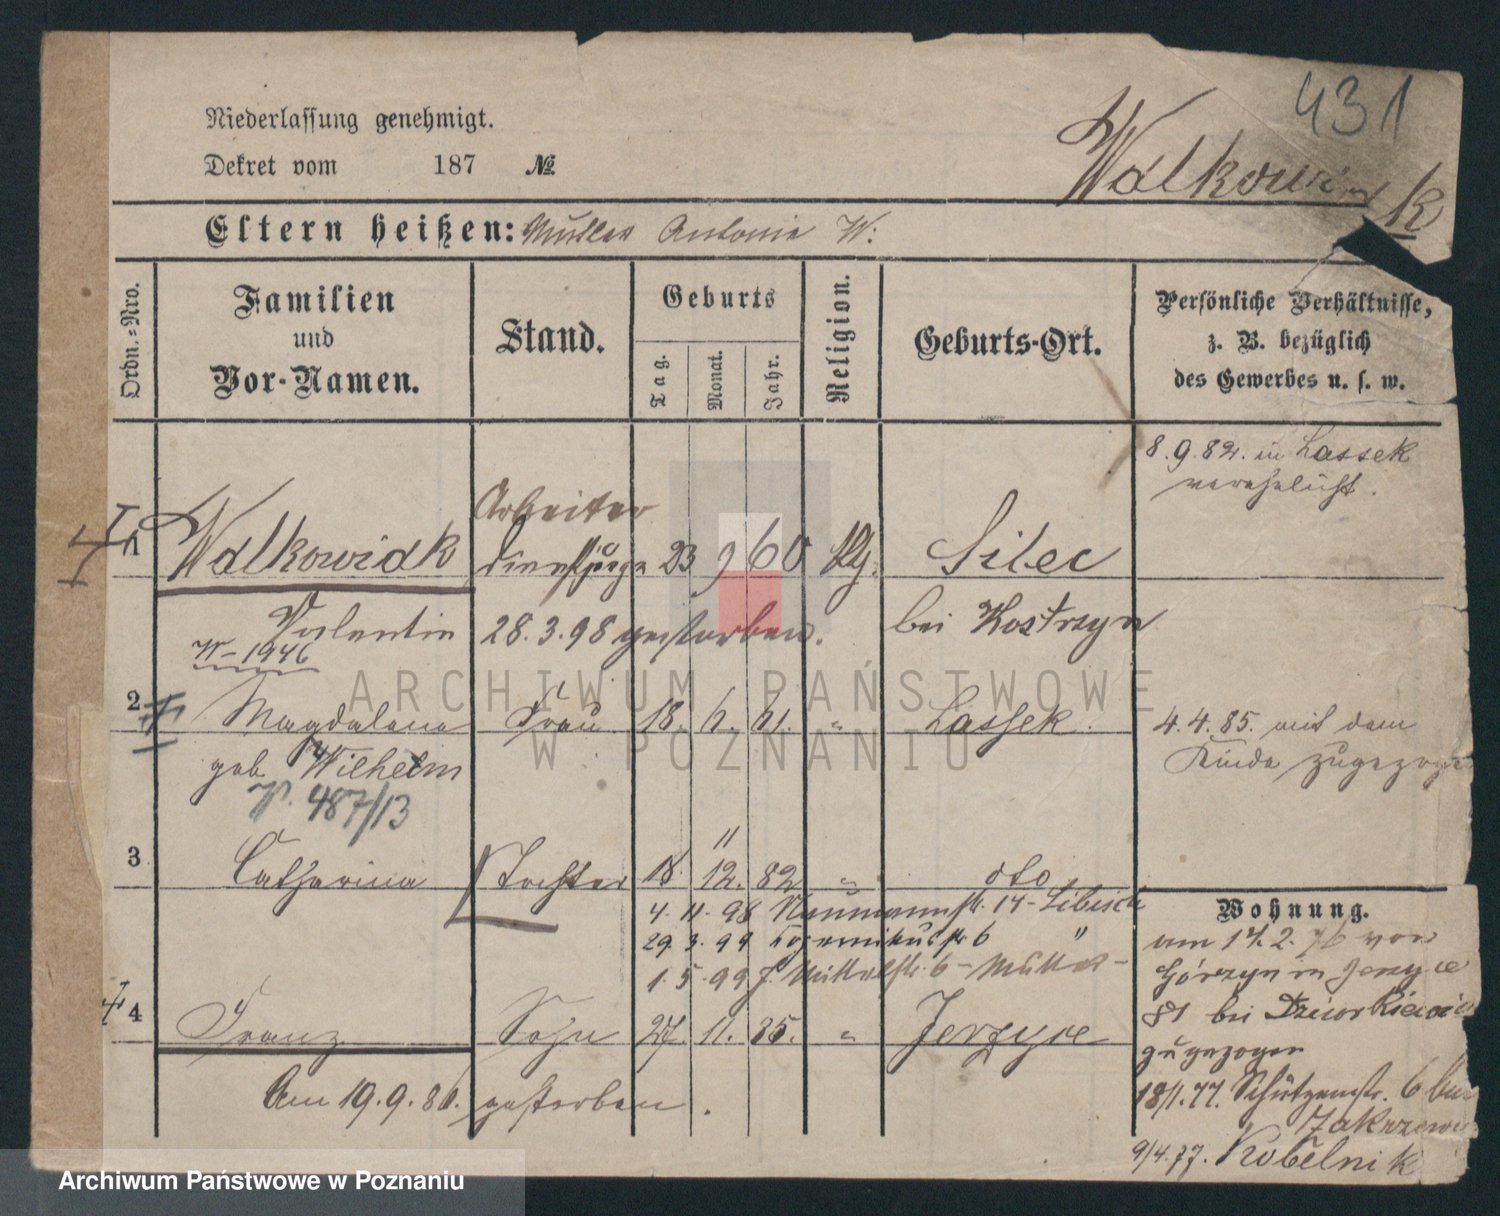 431
Niederlassung genehmigt.
Dekret vom 187 №
Walkowiak
Eltern heißen: Mutter Antonie W:
Ordn.-Nro.
Familien
und
Vor-Namen.
Stand.
Geburts
Tag.
Monat.
Jahr.
Religion.
Geburts-Ort.
Persönliche Verhältnisse,
z. B. bezüglich
des Gewerbes u. s. w.
8.9.82. in Lassek
verehelicht.
Arbeiter
1 Walkowiak Dienstjunge 23 9 60 Silec
Valentin 28.3.98 gestorben. bei Kostrzyn
W-1946
2 Magdalena Frau 18. 6. 61. " Lassek. 4.4.85. mit dem
geb. Wilhelm Kinde zugezogen
487/13
11
3 Catharina Tochter 18 12. 82 " dto
4.11.98 Naumannstr. 14-
29.3.99 Kopernikusstr 6 "
1.5.99 Mittelstr. 6 - Mutter -
Wohnung.
am 17.2.76 von
Górzyn in Jerzyce
81 bei
zugezogen
4 Franz Sohn 27. 11. 85. " Jerzyce
Am 19.9.86. gestorben.
18/1.77. Schützenstr. 6 bei
Zakrzew
9/4.77. Kobelnik
ARCHIWUM PAŃSTWOWE
W POZNANIU
Archiwum Państwowe w Poznaniu